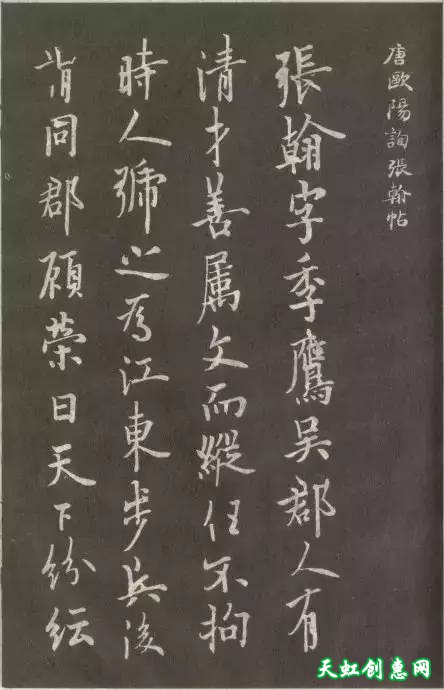 唐歐陽詢張翰帖
張翰字季鷹吳郡人有
清才善属文而縱任不拘
時人號之為江東步兵後
谓同郡顾榮曰天下紛紜
天虹创惠网